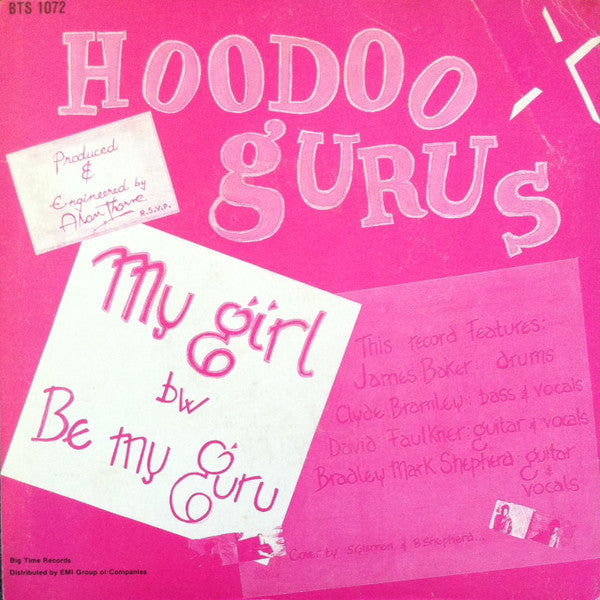 BTS 1072
HOODOO
GURUS
Produced
&
Engineered by
Alan Thorne
R.S.V.P.
My girl
bw
Be my Guru
This record Features:
James Baker: drums
Clyde Bramley: bass & vocals
David Faulkner: guitar & vocals
Bradley Mark Shepherd: guitar
&
vocals
Cover by S. Shannon & B. Shepherd...
Big Time Records
Distributed by EMI Group of Companies